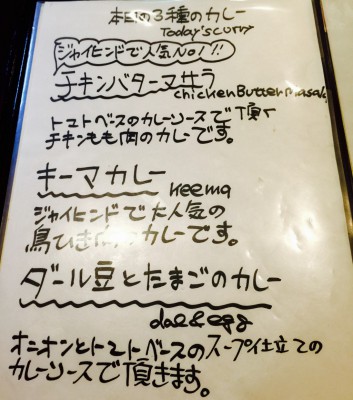 本日の3種のカレー
Today's curry
ジャイヒンドで人気No1!!
チキンバターマサラ
chicken Butter masala
トマトベースのカレーソースで頂く
チキンもも肉のカレーです。
キーマカレー
keema
ジャイヒンドで大人気の
鳥ひき肉のカレーです。
ダール豆とたまごのカレー
dal & egg
オニオンとトマトベースのスープ仕立ての
カレーソースで頂きます。